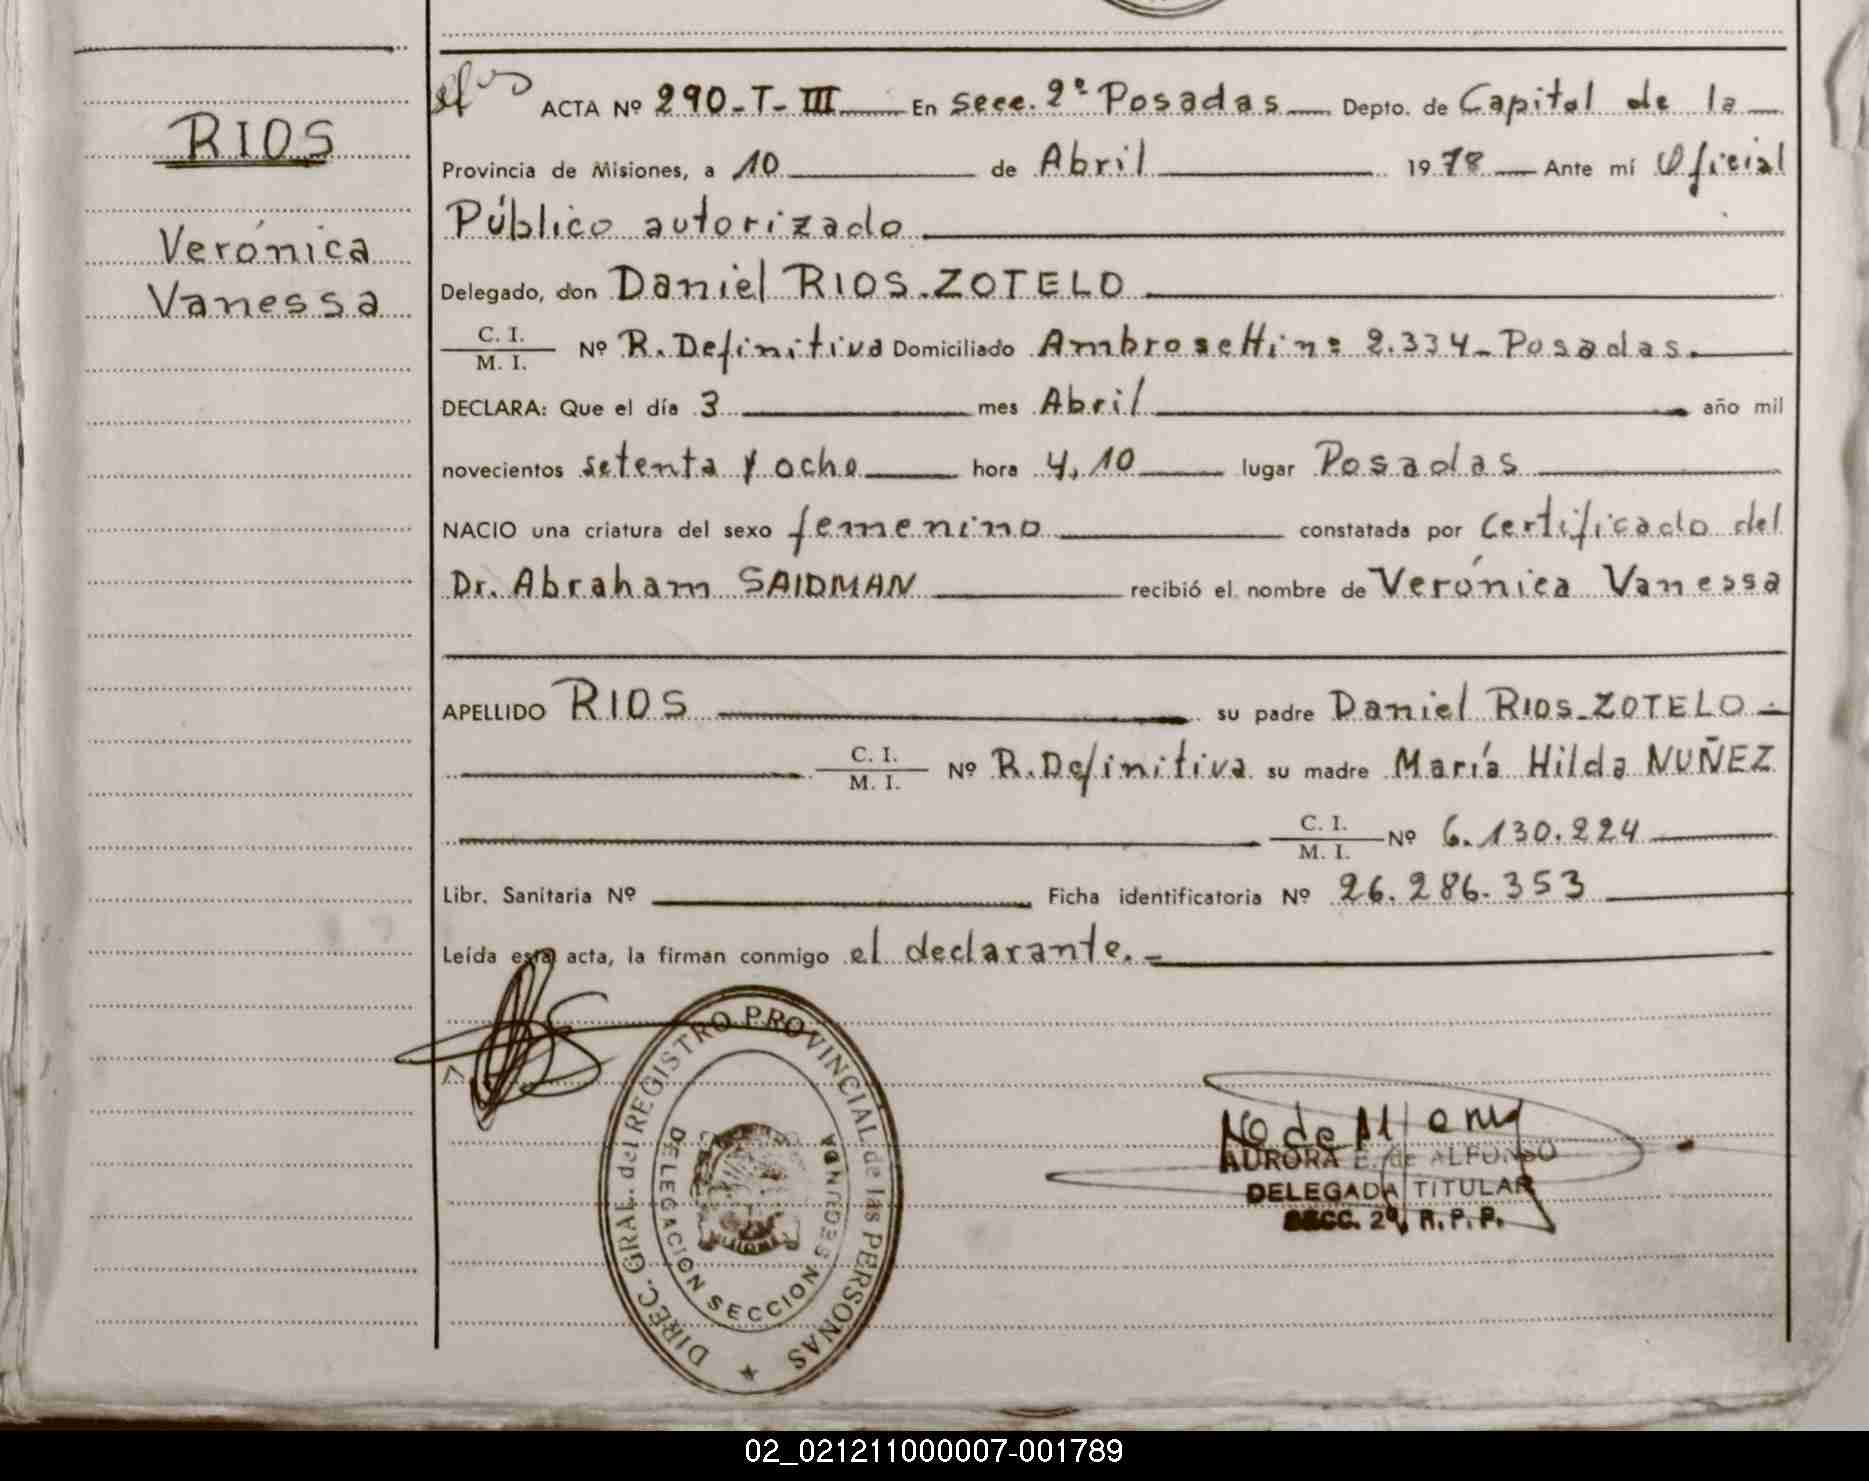 RIOS
Verónica
Vanessa
ACTA Nº 290-T-III En secc. 2ª Posadas Depto. de Capital de la
Provincia de Misiones, a 10 de Abril 1978 Ante mí Oficial
Público autorizado
Delegado, don Daniel RIOS-ZOTELO
C. I.
M. I. Nº R. Definitiva Domiciliado Ambrosetti nº 2.334-Posadas.
DECLARA: Que el día 3 mes Abril año mil
novecientos setenta y ocho hora 4,10 lugar Posadas
NACIO una criatura del sexo femenino constatada por Certificado del
Dr. Abraham SAIDMAN recibió el nombre de Verónica Vanessa
APELLIDO RIOS su padre Daniel RIOS-ZOTELO
C. I.
M. I. Nº R. Definitiva su madre María Hilda NUÑEZ
C. I.
M. I. Nº 6.130.224
Libr. Sanitaria Nº Ficha identificatoria Nº 26.286.353
Leída esta acta, la firman conmigo el declarante.-
DIREC. GRAL. del REGISTRO PROVINCIAL de las PERSONAS
DELEGACION SECCION SEGUNDA
MISIONES
AURORA E. de ALFONSO
DELEGADA TITULAR
SECC. 2ª. R. P. P.
02_021211000007-001789